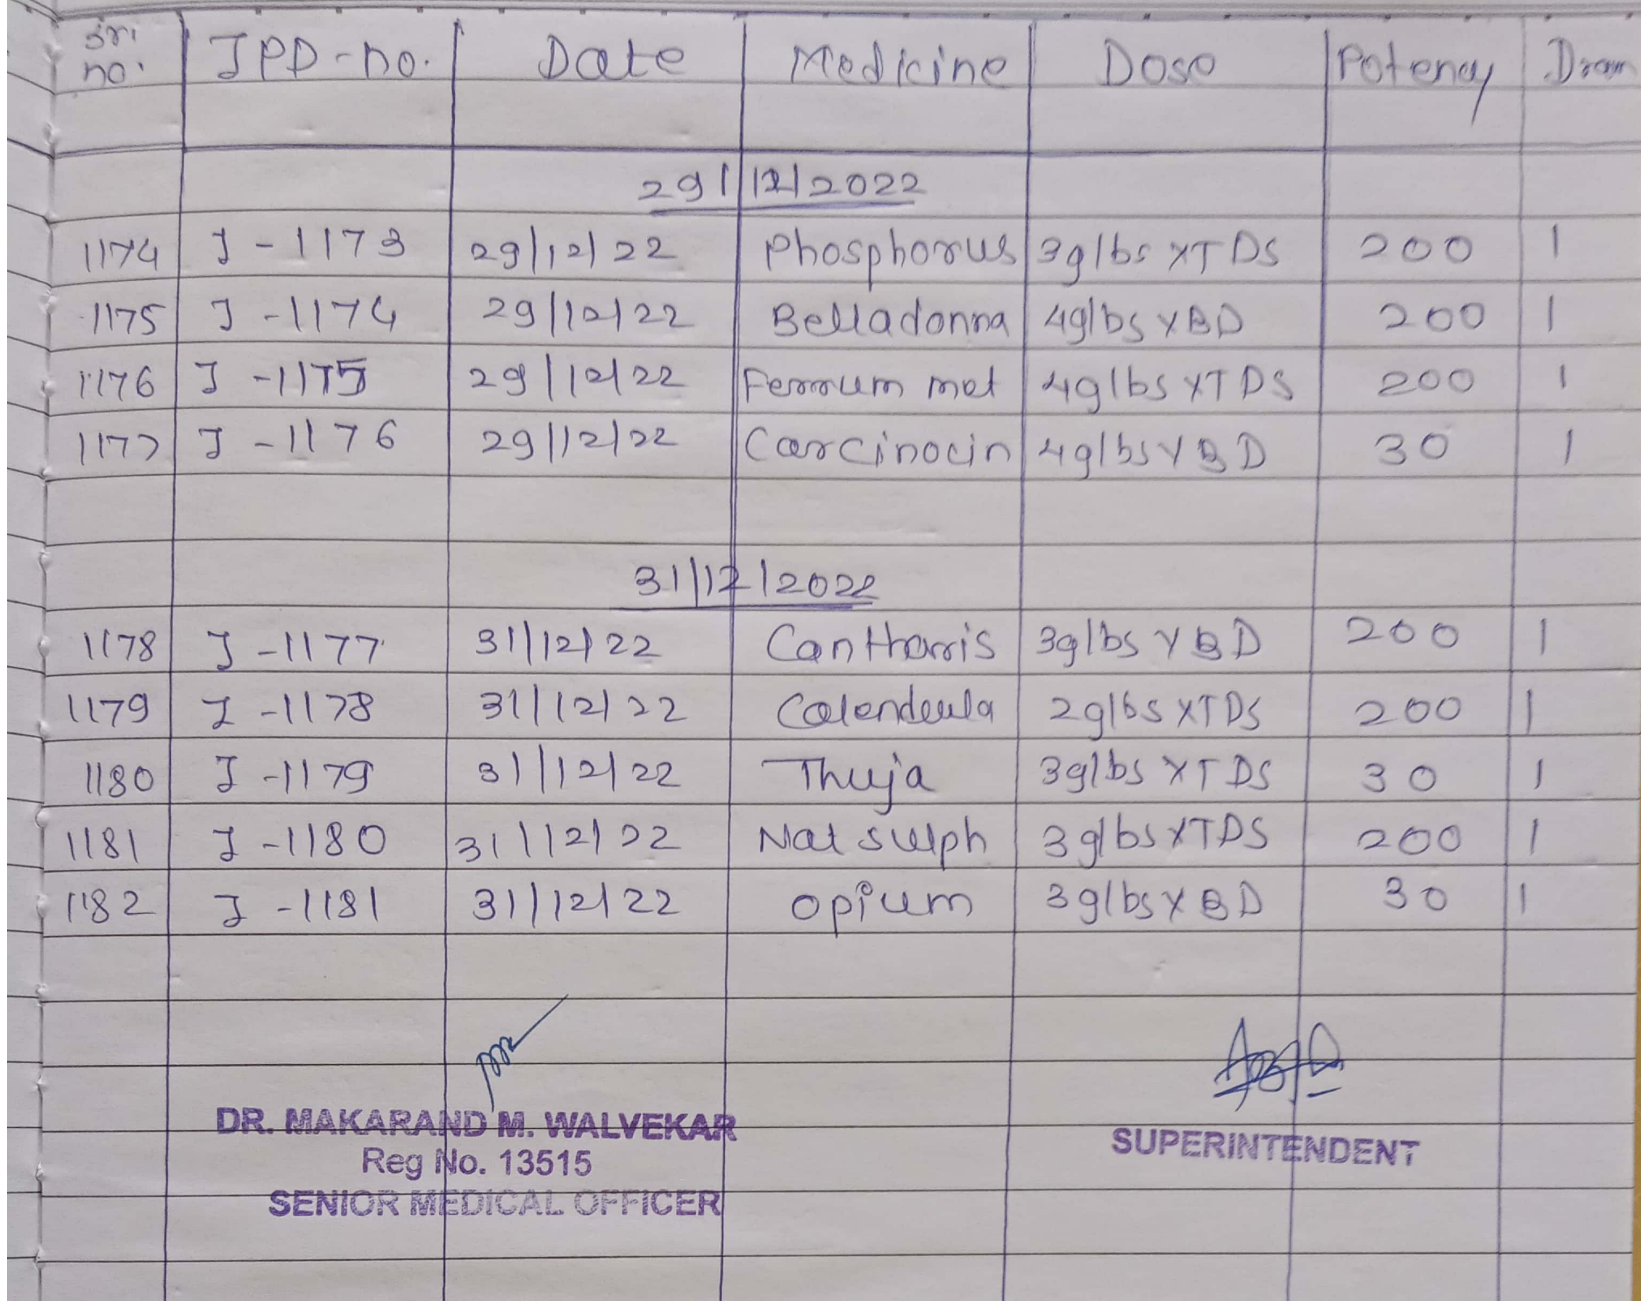 Sr. no. IPD-no. Date Medicine Dose Potency Dram
29/12/2022
1174 I-1173 29/12/22 Phosphorus 3glbs XTDS 200 1
1175 I-1174 29/12/22 Belladonna 4glbs XBD 200 1
1176 I-1175 29/12/22 Ferrum met 4glbs XTDS 200 1
1177 I-1176 29/12/22 Carcinocin 4glbs XBD 30 1
31/12/2022
1178 I-1177 31/12/22 Cantharis 3glbs XBD 200 1
1179 I-1178 31/12/22 Calendeula 2glbs XTDS 200 1
1180 I-1179 31/12/22 Thuja 3glbs XTDS 30 1
1181 I-1180 31/12/22 Nat sulph 3glbs XTDS 200 1
1182 I-1181 31/12/22 Opium 3glbs XBD 30 1
DR. MAKARAND M. WALVEKAR
Reg No. 13515
SENIOR MEDICAL OFFICER
SUPERINTENDENT